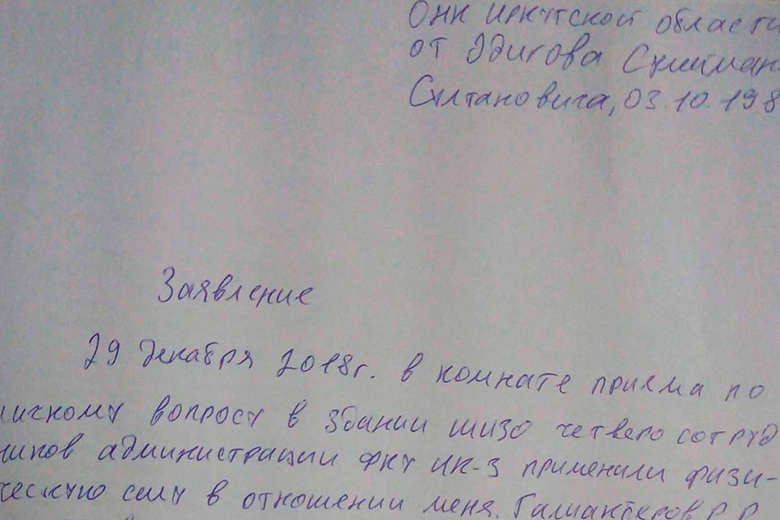 ОНК Иркутской области
от Эдигова Сулиман
Султановича, 03.10.198
Заявление
29 декабря 2018г. в комнате приема по
личному вопросу в здании ШИЗО четверо сотруд
ников администрации ФКУ ИК-3 применили физи-
ческую силу в отношении меня. Галиакберов Р.Р.